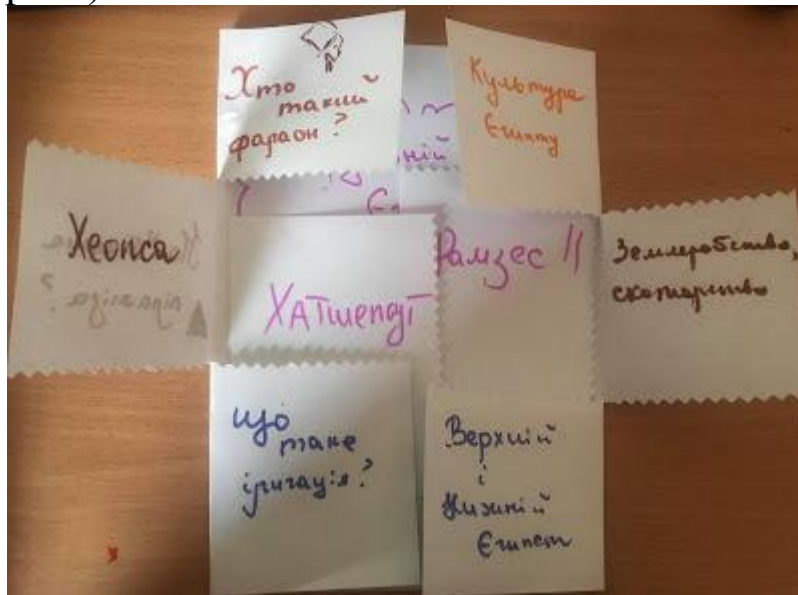 Хто
такий
фараон?
Культура
Єгипту
ній
Хеопса
піраміда?
ХАТшепдТ
Рамзес II
Землеробство,
скотарство
Що
таке
іригація?
Верхній
і
Нижній
Єгипет